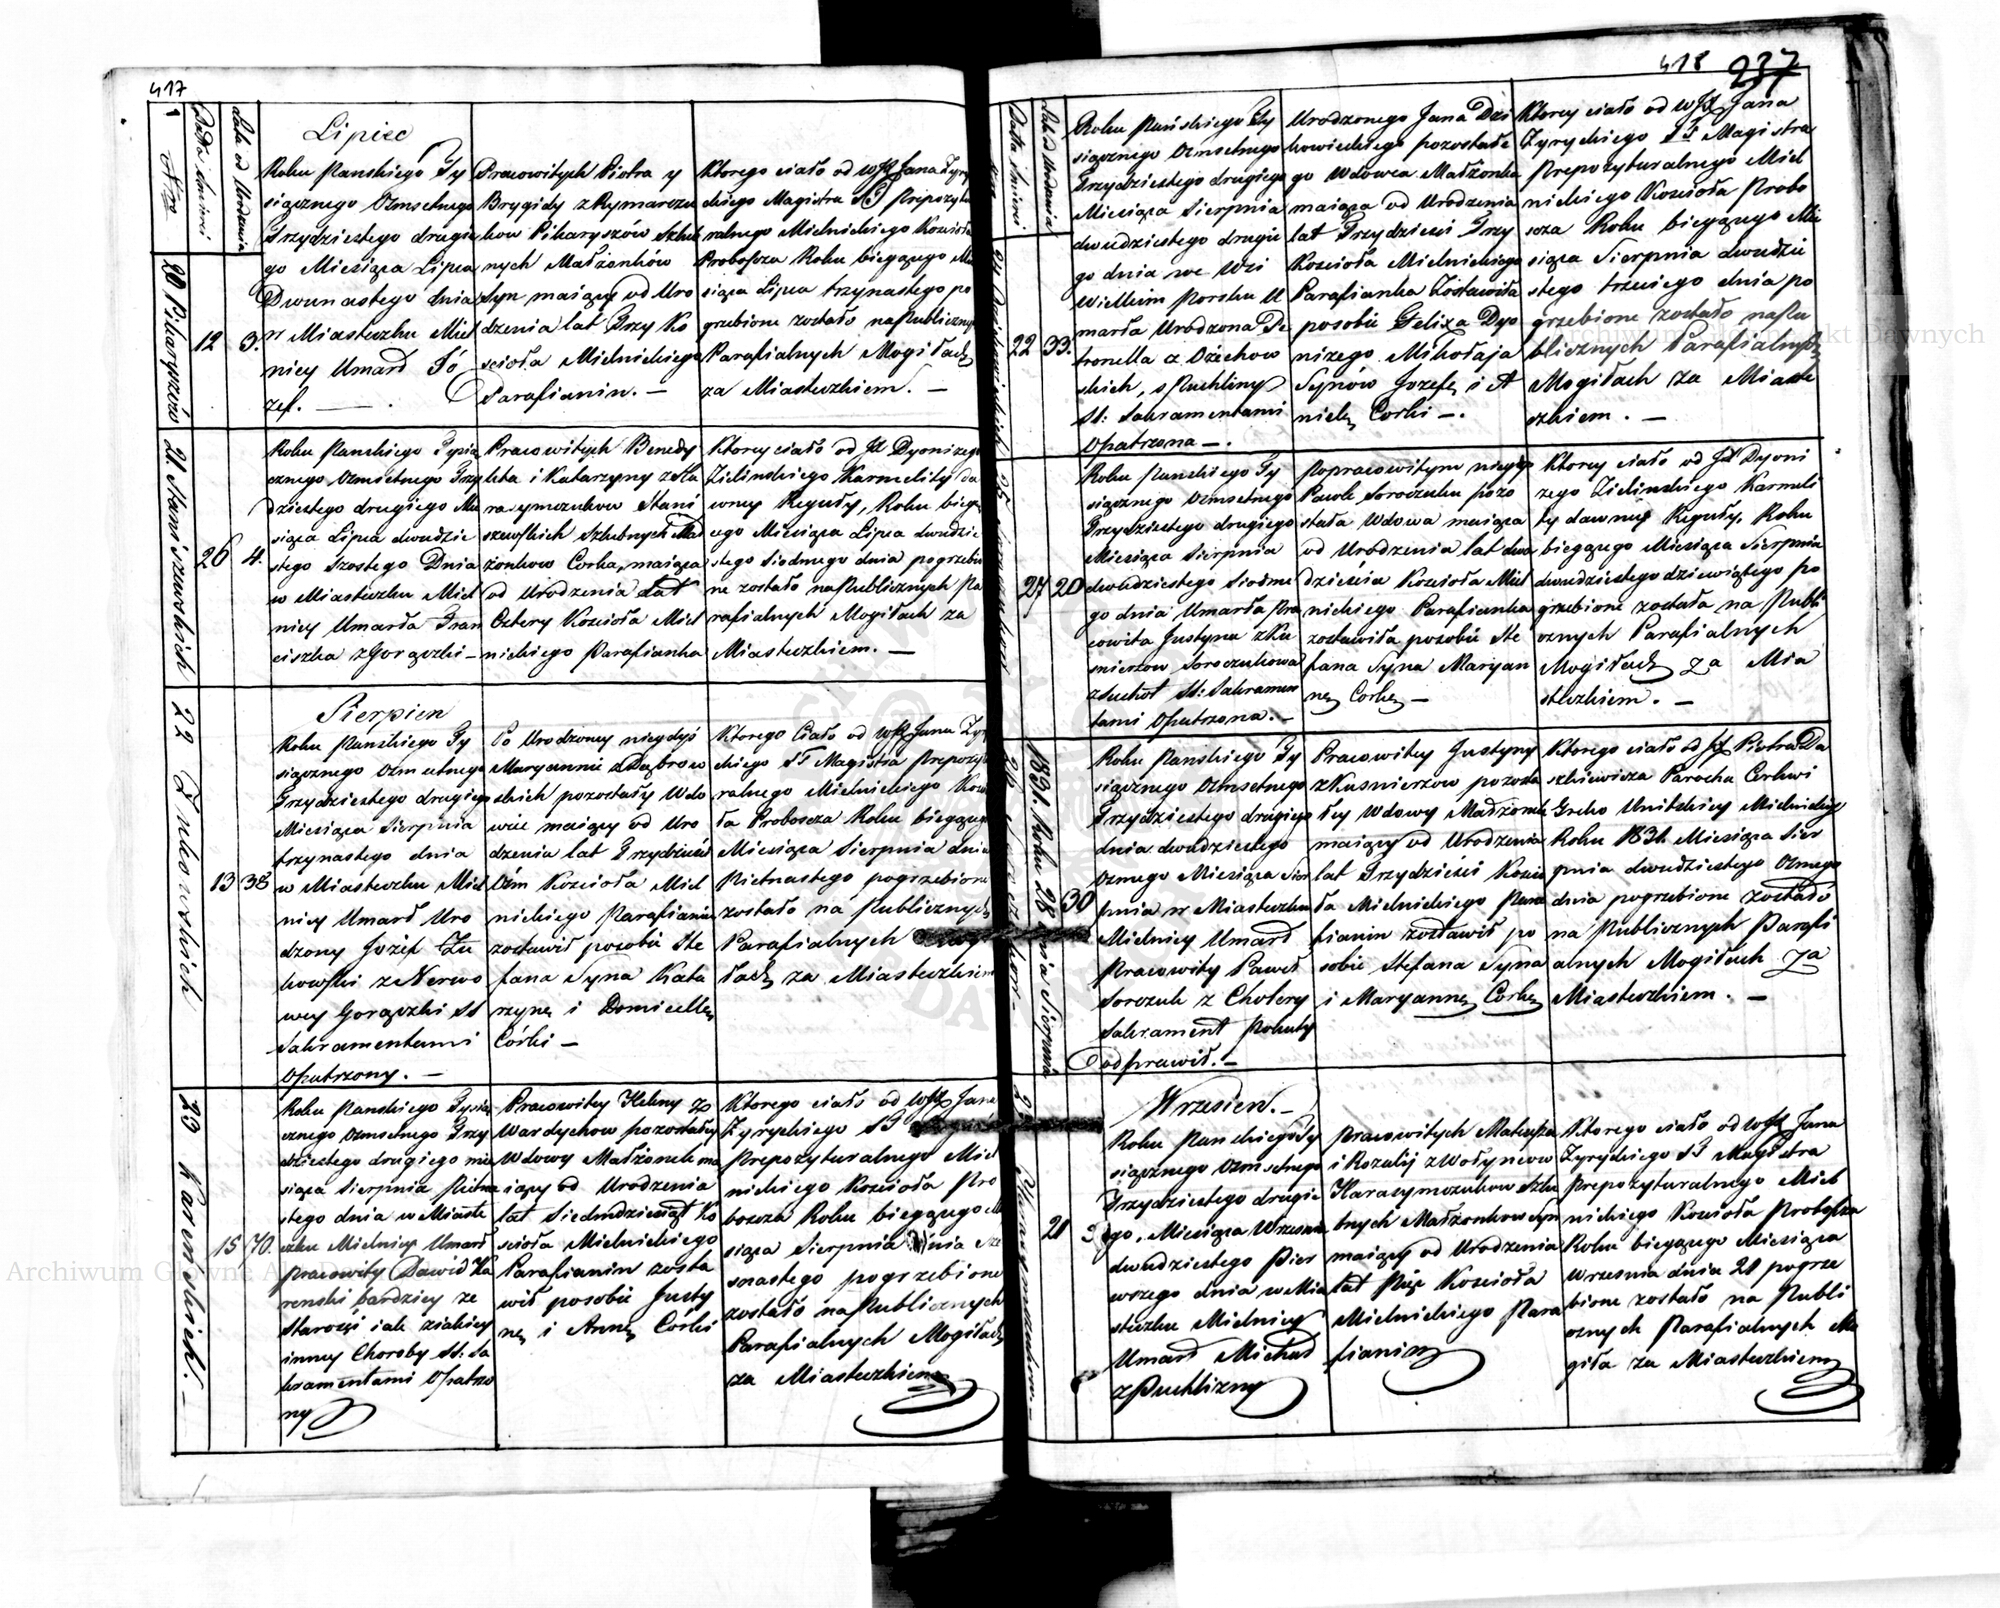 417
Nro
Data śmierci
Lata od Urodzenia
Lipiec
20 Piharyszów
12
3.
Roku Panskiego Ty
siącznego Ozmsetnego
Trzydziestego drugie
go Miesiąca Lipca
Dwunastego dnia
w Miasteczku Miel
nicy Umarł Jó
zef. —
Pracowitych Piotra y
Brygidy z Rymarczu
kow Piharyszów Szlub
nych Małżonków
Syn maiący od Uro
dzenia lat Trzy Ko
scioła Mielnickiego
Parafianin. —
Ktorego ciało od WJX Jana Zyry
ckiego Magistra ST Prepozytu
ralnego Mielnickiego Koscioła
Proboszcza Roku biegącego Mie
siąca Lipca trzynastego po
grzebione zostało na Publicznych
Parafialnych Mogiłach
za Miasteczkiem. —
21 Staniszewskich
26
4.
Roku Panskiego Tysią
cznego Ozmsetnego Trzy
dziestego drugiego Mie
siąca Lipca dwudzie
stego Szostego Dnia
w Miasteczku Miel
nicy Umarła Fran
ciszka z Gorączki —
Pracowitych Benedy
kta i Katarzyny z Ha
rasymczukow Stani
szewskich Szlubnych Mał
żonkow Corka, maiąca
od Urodzenia Lat
Cztery Koscioła Miel
nickiego Parafianka
Ktorey ciało od JX Dyonizego
Zielinskiego Karmelity da
wney Reguły, Roku biegą
cego Miesiąca Lipca dwudzie
stego Siodmego dnia pogrzebio
ne zostało na Publicznych Pa
rafialnych Mogiłach za
Miasteczkiem. —
Sierpien
22 Żukowskich
13
38
Roku Panskiego Ty
siącznego Ozmsetnego
Trzydziestego drugiego
Miesiąca Sierpnia
trzynastego dnia
w Miasteczku Miel
nicy Umarł Uro
dzony Jozef Żu
kowski z Nerwo
wey Gorączki SS
Sakramentami
Opatrzony. —
Po Urodzoney niegdyś
Maryannie z Dąbrow
skich pozostały Wdo
wiec maiący od Uro
dzenia lat Trzydzieści
Ośm Koscioła Miel
nickiego Parafianin
zostawił posobie Ste
fana Syna Kata
rzynę i Domicellę
Córki —
Ktorego Ciało od WJX Jana Zyry
ckiego ST Magistra Prepozytu
ralnego Mielnickiego Koscio
ła Proboszcza Roku biegącego
Miesiąca Sierpnia dnia
Pietnastego pogrzebione
zostało na Publicznych
Parafialnych
łach za Miasteczkiem
23 Karenskich. —
15
70.
Roku Panskiego Tysią
cznego Ozmsetnego Trzy
dziestego drugiego mie
siąca Sierpnia Pietna
stego dnia w Miaste
czku Mielnicy Umarł
Pracowity Dawid Ka
renski bardziey ze
Starości iak ziakiey
inney Choroby SS. Sa
kramentami Opatrzo
ny
Pracowitey Heleny z
Wardychow pozostały
Wdowy Małżonek ma
iący od Urodzenia
lat Siedmdziesiąt Ko
scioła Mielnickiego
Parafianin zosta
wił posobie Justy
nę i Annę Corki
Ktorego ciało od WJX Jana
Zyryckiego ST
Prepozyturalnego Miel
nickiego Koscioła Pro
boszcza Roku biegącego Mie
siąca Sierpnia Dnia Sze
snastego pogrzebione
zostało na Publicznych
Parafialnych Mogiłach
za Miasteczkiem
418
237
Data śmierci
Lata od Urodzenia
22
33.
Roku Pańskiego Ty
siącznego Ozmsetnego
Trzydziestego drugiego
Miesiąca Sierpnia
dwudziestego drugie
go dnia we Wsi
Wielkim Porsku U
marła Urodzona Pe
tronella z Ożechow
skich, s Puchliny
SS: Sakramentami
Opatrzona —.
Urodzonego Jana Dzi
kowickiego pozostałe
go Wdowca Małżonka
maiąca od Urodzenia
lat Trzydzieści Trzy
Koscioła Mielnickiego
Parafianka Zostawiła
posobie Felixa Dyo
nizego Mikołaja
Synów Jozefę i A
nielę Corki —.
Ktorey ciało od WJX Jana
Zyryckiego ST Magistra
Prepozyturalnego Miel
nickiego Koscioła Probo
szcza Roku biegącego Mie
siąca Sierpnia dwudzie
stego trzeciego dnia po
grzebione zostało na Pu
blicznych Parafialnych
Mogiłach za Miaste
czkiem. —
27
20
Roku Panskiego Ty
siącznego Ozmsetnego
Trzydziestego drugiego
Miesiąca Sierpnia
dwudziestego Siodme
go dnia Umarła Pra
cowita Justyna z Ku
snierzow Soroczukowa
z Suchot SS: Sakramen
tami Opatrzona. —
Popracowitym niegdy
Pawle Soroczuku pozo
stała Wdowa maiąca
od Urodzenia lat dwa
dzieścia Koscioła Miel
nickiego Parafianka
zostawiła posobie Ste
fana Syna Maryan
nę Corkę —
Ktorey ciało od JX Dyoni
zego Zielinskiego Karmeli
ty dawney Reguły, Roku
biegącego Miesiąca Sierpnia
dwudziestego dziewiątego po
grzebione zostało na Publi
cznych Parafialnych
Mogiłach za Mia
steczkiem. —
1831. Roku 28 dnia Sierpnia
30
Roku Panskiego Ty
siącznego Ozmsetnego
Trzydziestego drugiego
dnia dwudziestego
Ozmego Miesiąca Sier
pnia w Miasteczku
Mielnicy Umarł
Pracowity Paweł
Soroczuk z Cholery
Sakrament Pokuty
odprawił. —
Pracowitey Justyny
z Kusnierzow pozosta
łey Wdowy Małżonek
maiący od Urodzenia
lat Trzydzieści Koscio
ła Mielnickiego Para
fianin zostawił po
sobie Stefana Syna
i Maryannę Corkę
Ktorego ciało od JX Piotra Da
szkiewicza Parocha Cerkwi
Greko Unitskiey Mielnickiey
Roku 1831. Miesiąca Sier
pnia dwudziestego Ozmego
dnia pogrzebione zostało
na Publicznych Parafi
alnych Mogiłach za
Miasteczkiem. —
Wrzesień. —
21
Roku Panskiego Ty
siącznego Ozmsetnego
Trzydziestego drugie
go, Miesiąca Wrzesnia
dwudziestego Pier
wszego dnia w Mia
steczku Mielnicy
Umarł Michał
z Puchlizny
Pracowitych Mateusza
i Rozalij z Wołyncow
Harasymczukow Szlu
bnych Małzonkow Syn
maiący od Urodzenia
lat Koscioła
Mielnickiego Para
fianin
Ktorego ciało od WJX Jana
Zyryckiego ST Magistra
Prepozyturalnego Miel
nickiego Koscioła Proboszcza
Roku biegącego Miesiąca
Wrzesnia dnia 21 pogrze
bione zostało na Publi
cznych Parafialnych Mo
giła za Miasteczkiem
Archiwum Główne Akt Dawnych
Archiwum Główne Akt Dawnych